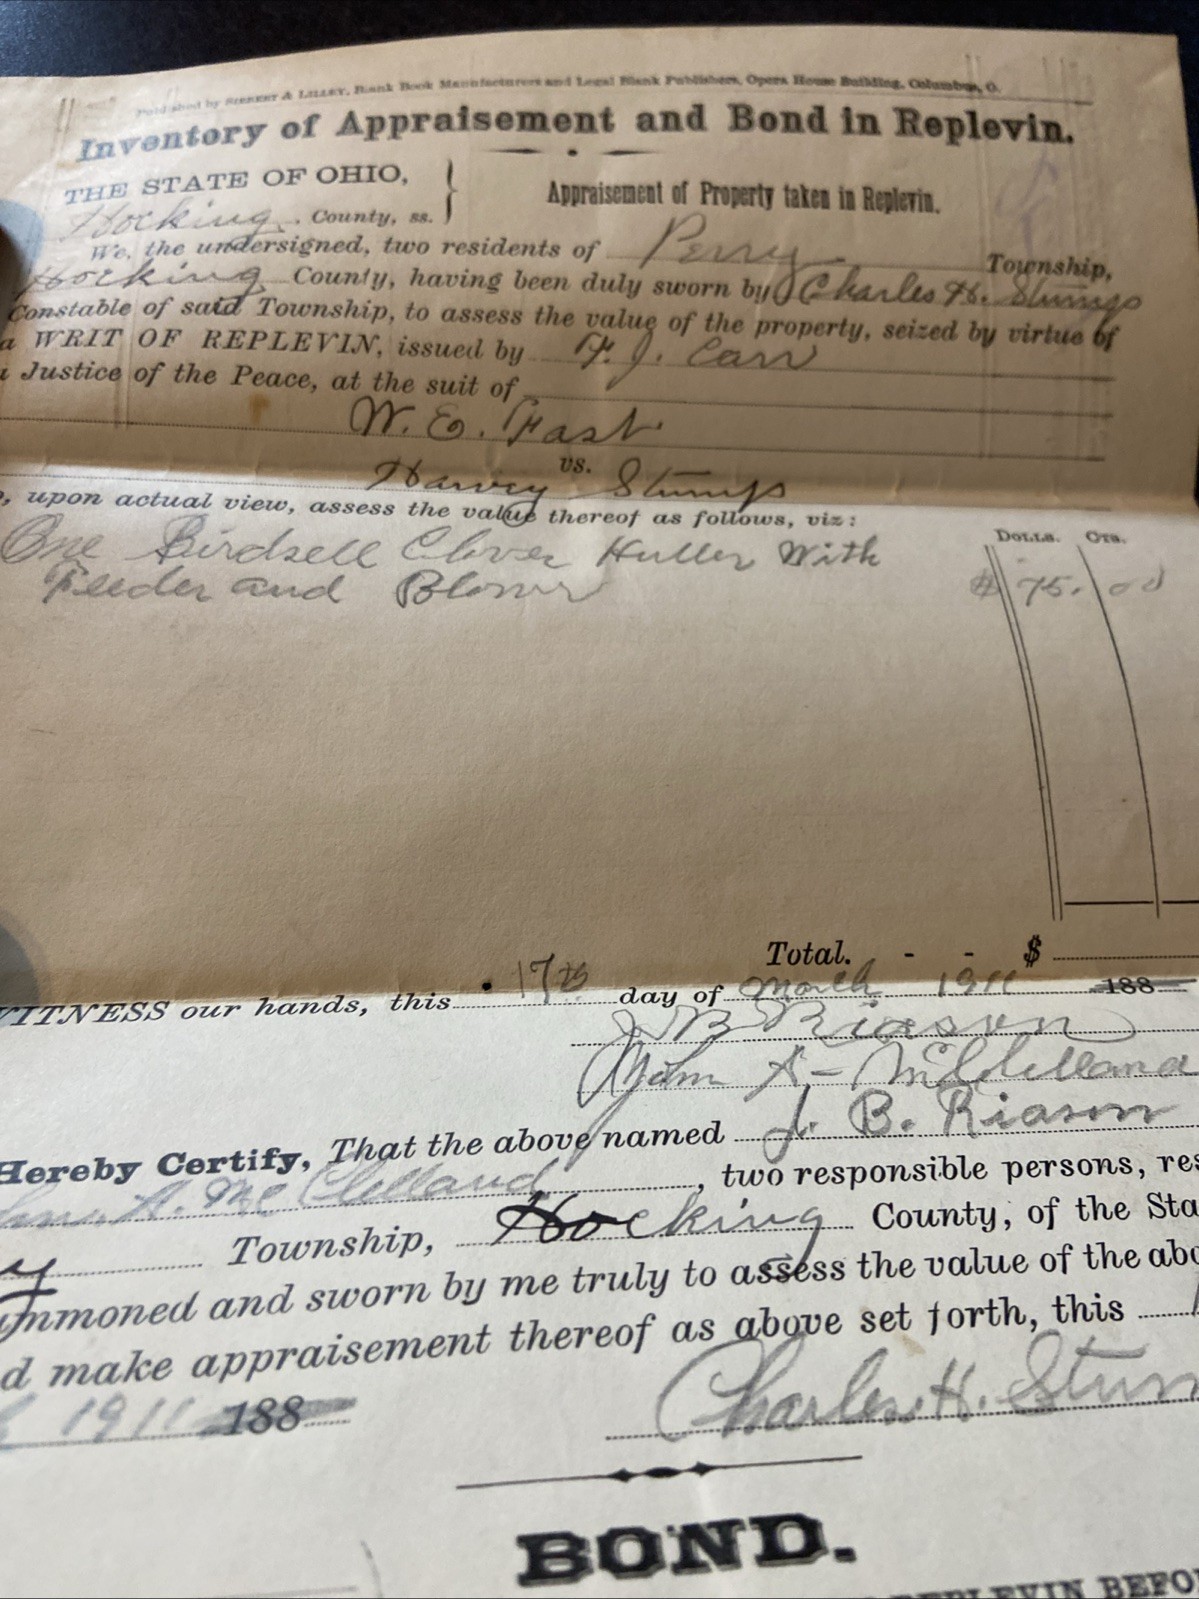 Published by SIEBERT & LILLEY, Blank Book Manufacturers and Legal Blank Publishers, Opera House Building, Columbus, O.
Inventory of Appraisement and Bond in Replevin.
THE STATE OF OHIO,
Hocking County, ss.
Appraisement of Property taken in Replevin.
We, the undersigned, two residents of Perry Township,
Hocking County, having been duly sworn by Charles H. Stumps
Constable of said Township, to assess the value of the property, seized by virtue of
a WRIT OF REPLEVIN, issued by F. J. Carr
a Justice of the Peace, at the suit of
W. E. Fast
vs.
Harvey Stumps
, upon actual view, assess the value thereof as follows, viz:
DOLLS. CTS.
One Birdsell Clover Huller With
Feeder and Blower $ 75.00
Total. - - $
WITNESS our hands, this 17th day of March 1911 188
J B Riason
John A- McClelland
Hereby Certify, That the above named J. B. Riason
John. A. McClelland, two responsible persons, res
y Township, Hocking County, of the Sta
ummoned and sworn by me truly to assess the value of the abo
d make appraisement thereof as above set forth, this
1911 188
Charles H. Stum
BOND.
REPLEVIN BEFO